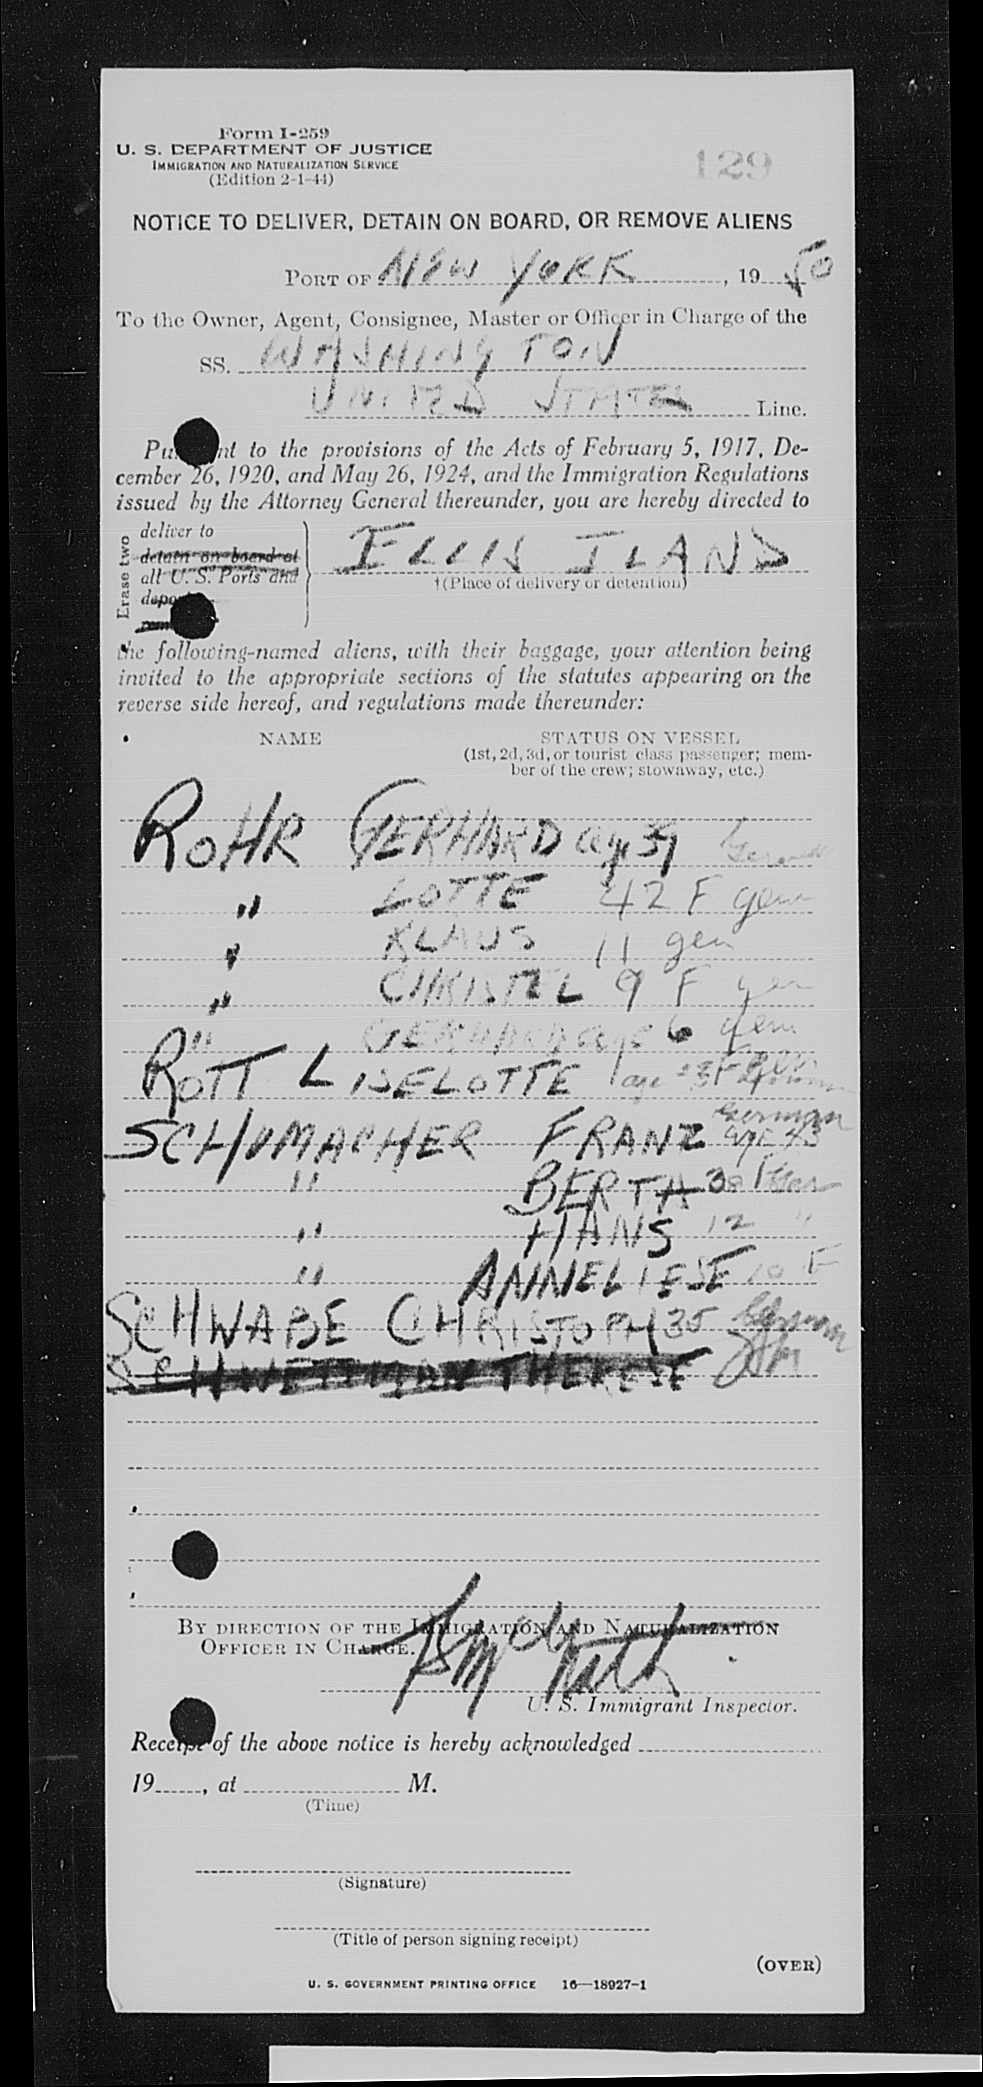 Form I-259
U. S. DEPARTMENT OF JUSTICE
IMMIGRATION AND NATURALIZATION SERVICE
(Edition 2-1-44)
129
NOTICE TO DELIVER, DETAIN ON BOARD, OR REMOVE ALIENS
PORT OF NEW YORK, 19 50
To the Owner, Agent, Consignee, Master or Officer in Charge of the
SS. WASHINGTON
UNITED STATES Line.
to the provisions of the Acts of February 5, 1917, De-
cember 26, 1920, and May 26, 1924, and the Immigration Regulations
issued by the Attorney General thereunder, you are hereby directed to
Erase two
deliver to
detain on board at
all U. S. Ports and
ELLIS ILAND
†(Place of delivery or detention)
the following-named aliens, with their baggage, your attention being
invited to the appropriate sections of the statutes appearing on the
reverse side hereof, and regulations made thereunder:
NAME
STATUS ON VESSEL
(1st, 2d, 3d, or tourist class passenger; mem-
ber of the crew; stowaway, etc.)
ROHR GERHARD age 39
" LOTTE 42 F gem
" KLAUS 11 gen
" CHRISTEL 9 F gen
" GERHARD age 6 gem
ROTT LISELOTTE age
SCHUMACHER FRANZ German age 43
" BERTA 38 F Ger
" HANS 12 "
" ANNELIESE 10 F
SCHWABE CHRISTOPH 35 German
THERESE
BY DIRECTION OF THE IMMIGRATION AND NATURALIZATION
OFFICER IN CHARGE.
U. S. Immigrant Inspector.
Receipt of the above notice is hereby acknowledged
19 , at M.
(Time)
(Signature)
(Title of person signing receipt)
(OVER)
U. S. GOVERNMENT PRINTING OFFICE 16—18927-1